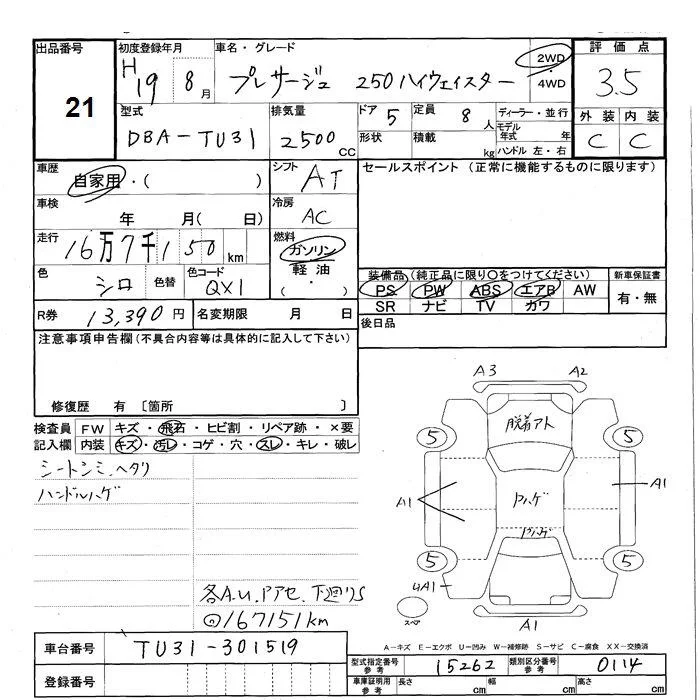 出品番号 初度登録年月 車名・グレード 2WD 評価点
21 H19 8月 プレサージュ 250ハイウェイスター ・4WD 3.5
型式 排気量 ドア 5 定員 8人 ディーラー・並行 外装 内装
DBA-TU31 2500 CC 形状 積載 kg モデル年式 年 C C
ハンドル 左・右
車歴 自家用・( ) シフト AT セールスポイント (正常に機能するものに限ります)
車検 年 月( 日) 冷房 AC
走行 16万7千150km 燃料 ガソリン
軽油
( ・ )
色 シロ 色替 色コード QX1
装備品(純正品に限り○をつけてください) 新車保証書
PS PW ABS エアB AW 有・無
SR ナビ TV カワ
R券 13,390円 名変期限 月 日 後日品
注意事項申告欄(不具合内容等は具体的に記入して下さい)
修復歴 有 〔箇所 〕
検査員 FW キズ・飛石・ヒビ割・リペア跡・×要
記入欄 内装 キズ・汚レ・コゲ・穴・スレ・キレ・破レ
シートシミ、ヘタリ
ハンドルハゲ
各A.U.Pアセ.下廻りS
@167151km
A3 A2
脱着アト
5 5
A1 A1
Pハゲ
Pハゲ
5 5
UA1
スペア A1
車台番号 TU31-301519
登録番号
A-キズ E-エクボ U-凹み W-補修跡 S-サビ C-腐食 XX-交換済
型式指定番号 参考 15262 類別区分番号 参考 0114
車庫証明用 参考 長さ cm 幅 cm 高さ cm